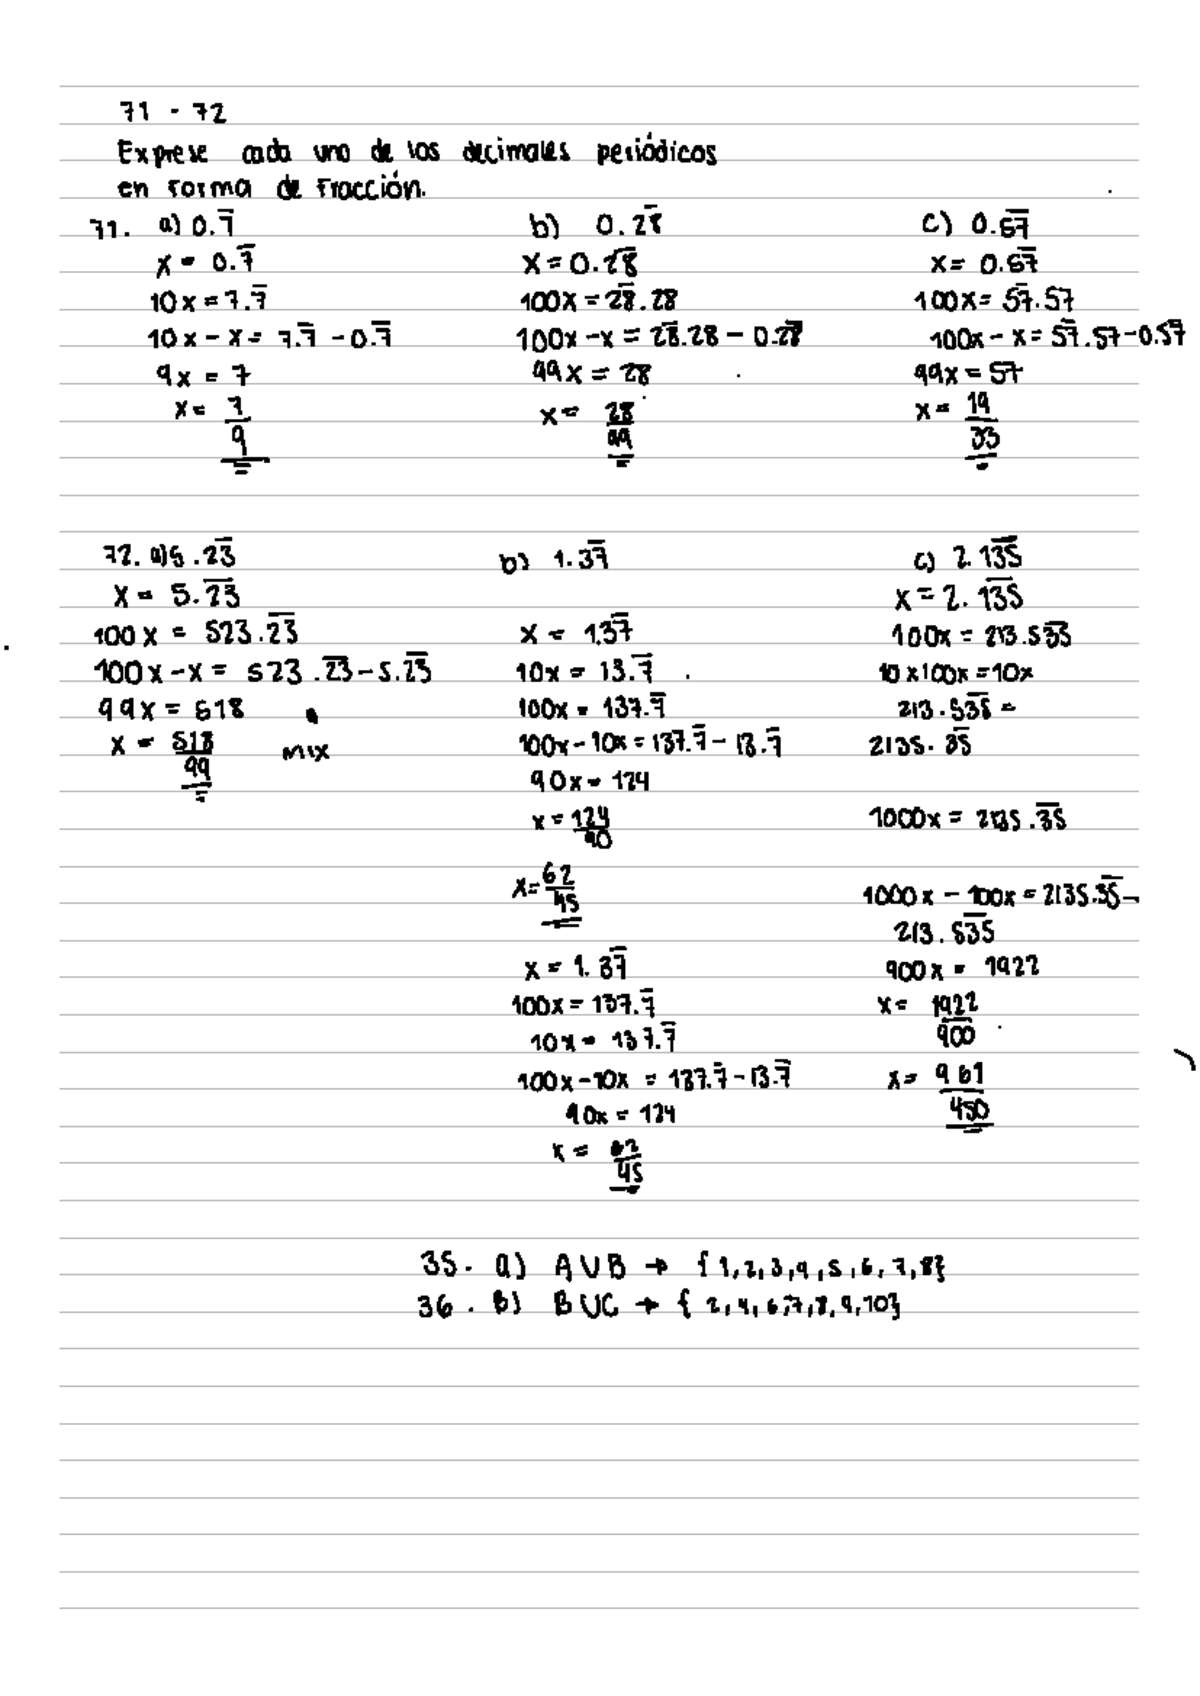 71 - 72
Exprese cada uno de los decimales periódicos
en forma de fracción.
71. a) 0.7̅
x = 0.7̅
10x = 7.7̅
10x - x = 7.7̅ - 0.7̅
9x = 7
x = 7/9
b) 0.28̅
x = 0.2̅8̅
100x = 2̅8̅.28
100x - x = 2̅8̅.28 - 0.28̅
99x = 28
x = 28/99
c) 0.5̅7̅
x = 0.5̅7̅
100x = 5̅7̅.57
100x - x = 5̅7̅.57 - 0.57̅
99x = 57
x = 19/33
72. a) 5.2̅3̅
x = 5.2̅3̅
100x = 523.2̅3̅
100x - x = 523.2̅3̅ - 5.2̅3̅
99x = 518
x = 518/99
mix
b) 1.37̅
x = 1.37̅
10x = 13.7̅
100x = 137.7̅
100x - 10x = 137.7̅ - 13.7̅
90x = 124
x = 124/90
x = 62/45
x = 1.37̅
100x = 137.7̅
10x = 137.7̅
100x - 10x = 137.7̅ - 13.7̅
90x = 124
x = 62/45
c) 2.13̅5̅
x = 2.13̅5̅
100x = 213.53̅5̅
10 x 100x = 10x
213.53̅5̅ =
2135.3̅5̅
1000x = 2135.3̅5̅
1000x - 100x = 2135.3̅5̅ -
213.53̅5̅
900x = 1922
x = 1922/900
x = 961/450
35. a) AUB → {1,2,3,4,5,6,7,8}
36. B) BUC → {2,4,6,7,8,9,10}